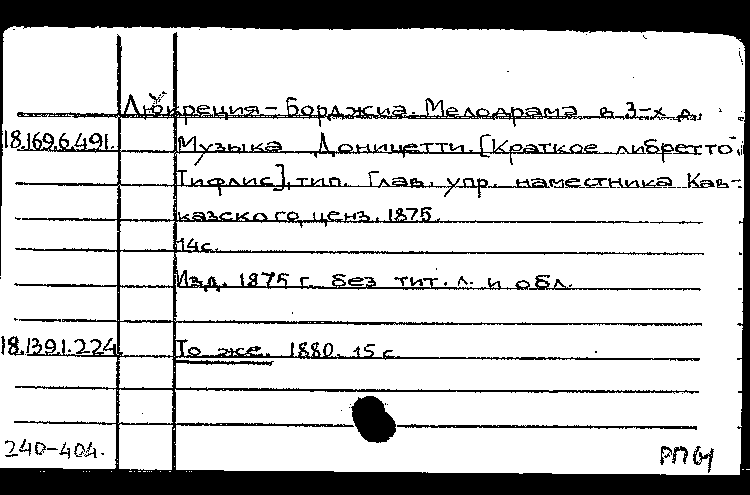 Люкреция-Борджиа. Мелодрама в 3-х д.
18.169.6.491. Музыка Доницетти. [Краткое либретто.
Тифлис], тип. Глав. упр. наместника Кав-
казского, ценз. 1875.
14с.
Изд. 1875 г. без тит. л. и обл.
18.139.1.224. То же. 1880. 15 с.
240-404.